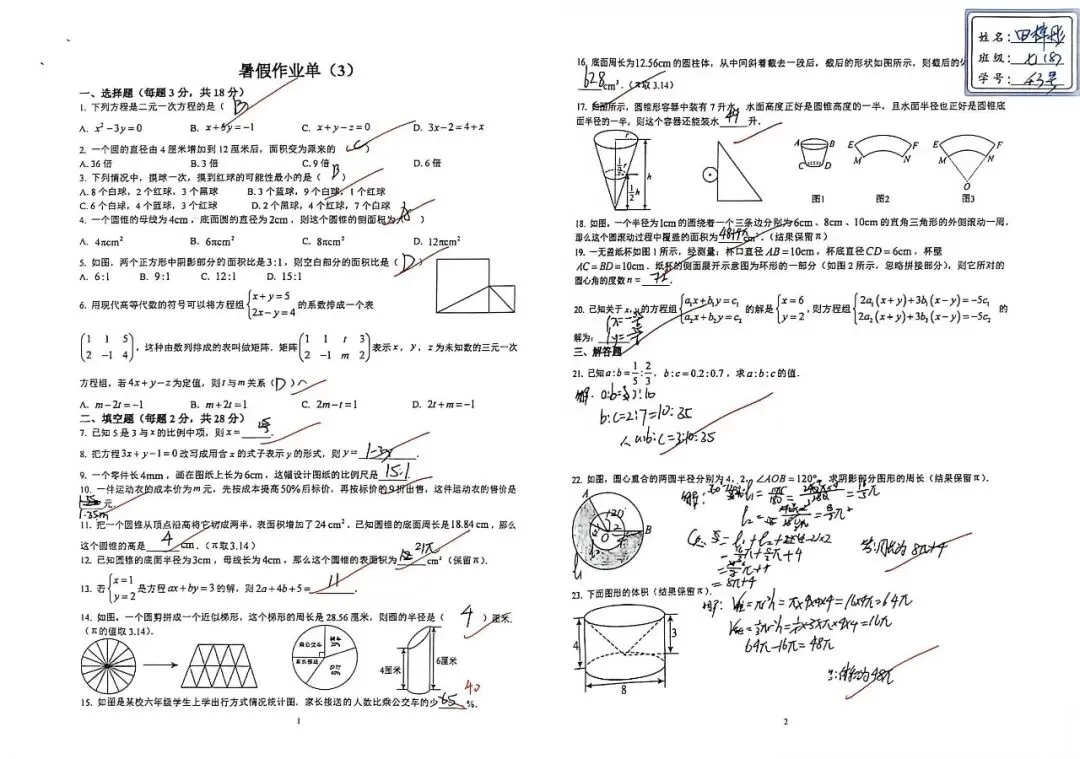 暑假作业单（3）
一、选择题（每题 3 分，共 18 分）
1. 下列方程是二元一次方程的是（ B ）
A. x²－3y＝0 B. x＋6y＝－1 C. x＋y－z＝0 D. 3x－2＝4＋x
2. 一个圆的直径由 4 厘米增加到 12 厘米后，面积变为原来的（ C ）
A. 36 倍 B. 3 倍 C. 9 倍 D. 6 倍
3. 下列情况中，摸球一次，摸到红球的可能性最小的是（ B ）
A. 8 个白球，2 个红球，3 个黑球 B. 3 个蓝球，9 个白球，1 个红球
C. 6 个白球，4 个蓝球，3 个红球 D. 2 个黑球，4 个红球，7 个白球
4. 一个圆锥的母线为4cm，底面圆的直径为2cm，则这个圆锥的侧面积为（ A ）
A. 4πcm² B. 6πcm² C. 8πcm² D. 12πcm²
5. 如图，两个正方形中阴影部分的面积比是3:1，则空白部分的面积比是（ D ）
A. 6:1 B. 9:1 C. 12:1 D. 15:1
6. 用现代高等代数的符号可以将方程组{x＋y＝5 2x－y＝4 的系数排成一个表
(1 1 5 2 －1 4)，这种由数列排成的表叫做矩阵．矩阵(1 1 t 3 2 －1 m 2)表示 x，y，z 为未知数的三元一次
方程组，若4x＋y－z为定值，则 t 与 m 关系（ D ）
A. m－2t＝－1 B. m＋2t＝1 C. 2m－t＝1 D. 2t＋m＝－1
二、填空题（每题 2 分，共 28 分）
7. 已知 5 是 3 与 x 的比例中项，则 x＝
8. 把方程3x＋y－1＝0改写成用含 x 的式子表示 y 的形式，则 y＝ 1-3x ．
9. 一个零件长4mm，画在图纸上长为6cm，这幅设计图纸的比例尺是 15:1 ．
10. 一件运动衣的成本价为 m 元，先按成本提高50%后标价，再按标价的9折出售，这件运动衣的售价是
元． 1.35m
11. 把一个圆锥从顶点沿高将它切成两半，表面积增加了 24 cm²．已知圆锥的底面周长是18.84 cm，那么
这个圆锥的高是 4 cm．（π取3.14）
12. 已知圆锥的底面半径为3cm，母线长为4cm，那么这个圆锥的表面积为 21π cm²（保留π）．
13. 若{x＝1 y＝2 是方程 ax＋by＝3 的解，则 2a＋4b＋5＝ 11 ．
14. 如图，一个圆剪拼成一个近似梯形，这个梯形的周长是 28.56 厘米，则圆的半径是（ 4 ）厘米．
（π的值取3.14）．
乘公交车
4厘米
6厘米
15. 如图是某校六年级学生上学出行方式情况统计图．家长接送的人数比乘公交车的少 65 %．
40
1
姓名：田梓彤
班级：七(8)
学号：43号
16. 底面周长为12.56cm的圆柱体，从中间斜着截去一段后，截后的形状如图所示，则截后的
628 cm³．（π取3.14）
17. 如图所示，圆锥形容器中装有 7 升水，水面高度正好是圆锥高度的一半，且水面半径也正好是圆锥底
面半径的一半，则这个容器还能装水 49 升．
r
h
½h
A B
C D
图1
E F
M N
图2
E F
M N
O
图3
18. 如图，一个半径为1cm的圆绕着一个三条边分别为6cm、8cm、10cm的直角三角形的外侧滚动一周．
那么这个圆滚动过程中覆盖的面积为 48+4π cm²．（结果保留π）
19. 一无盖纸杯如图 1 所示，经测量：杯口直径 AB＝10cm，杯底直径CD＝6cm，杯壁
AC＝BD＝10cm．纸杯的侧面展开示意图为环形的一部分（如图 2 所示，忽略拼接部分），则它所对的
圆心角的度数 n＝ 72 ．
20. 已知关于 x，y 的方程组{a₁x＋b₁y＝c₁ a₂x＋b₂y＝c₂ 的解是{x＝6 y＝2，则方程组{2a₁(x＋y)＋3b₁(x－y)＝－5c₁ 2a₂(x＋y)＋3b₂(x－y)＝－5c₂ 的
解为：
三、解答题
21. 已知 a:b＝1/5:2/3，b:c＝0.2:0.7，求 a:b:c 的值．
解：a:b=3:10
b:c=2:7=10:35
∴a:b:c=3:10:35
22. 如图，圆心重合的两圆半径分别为 4，2，∠AOB＝120°，求阴影部分图形的周长（结果保留π）．
A
120°
O
B
=8π+4
答:周长为8π+4
23. 下面图形的体积（结果保留π）．
4
3
8
解: V柱=πr²h=π×4×4×4=16×4π=64π
V锥=⅓πr²h=⅓×3×π×4×4=16π
64π-16π=48π
答:体积为48π
2